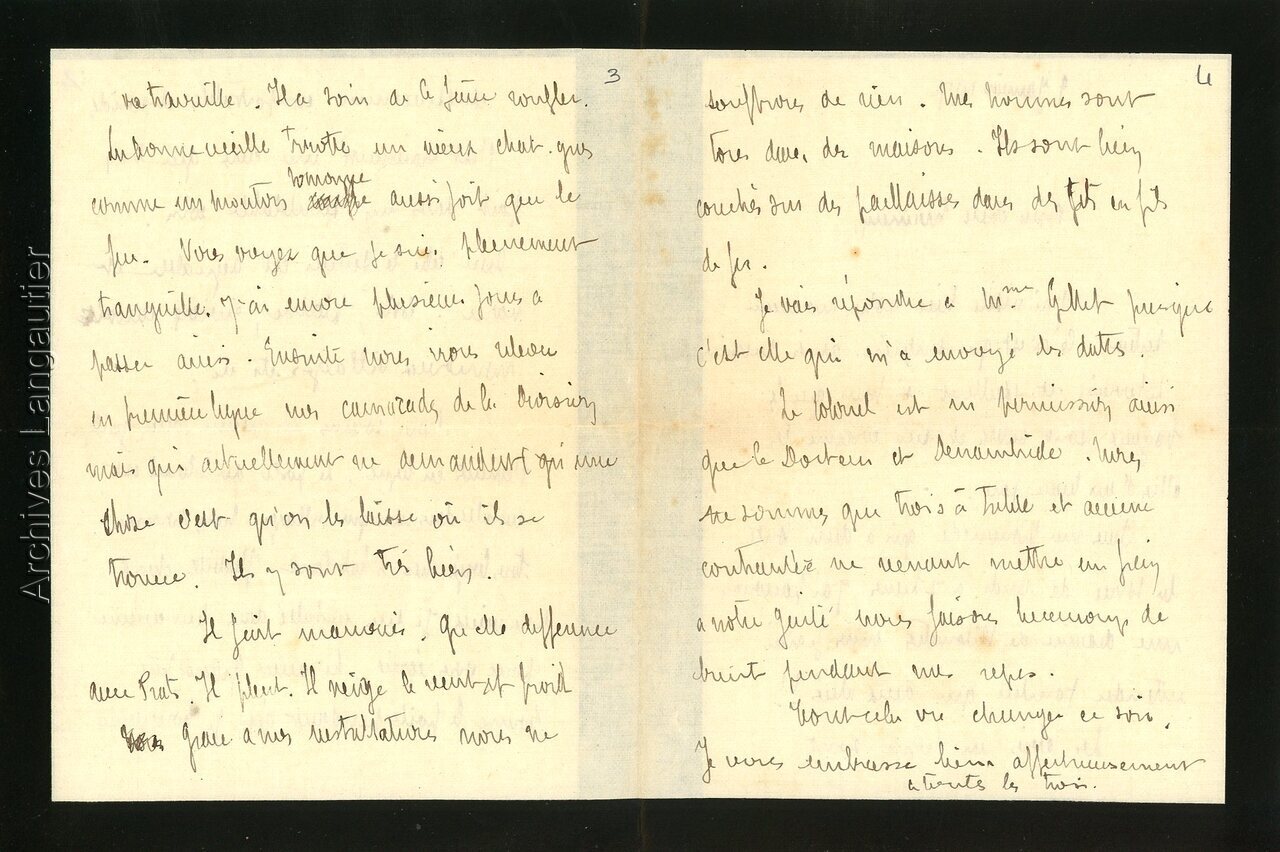 3
va travaille. Il a soin de le faire ronfler.
La bonne vieille tricote un vieux chat gros
comme un mouton ronronne aussi fort que le
feu. Vous voyez que je suis pleinement
tranquille. J'ai encore plusieurs jours a
passer ainsi. Ensuite nous irons relever
en première ligne nos camarades de la Division
mais qui actuellement ne demandent qu'une
chose c'est qu'on les laisse où ils se
trouve. Ils y sont très bien.
Il fait mauvais. Quelle difference
avec Prats. Il pleut. Il neige le vent est froid
Grace a nos installations nous ne
4
souffrons de rien. Mes hommes sont
tous dans des maisons. Ils sont bien
couchés sur des paillaisses dans des lits en fils
de fer.
Je vais répondre a Mme Gillet puisque
c'est elle qui m'a envoyé les dattes.
Le Colonel est en permission ainsi
que le Docteur et . Nous
ne sommes que trois à table et aucune
contrainte ne venant mettre un frein
a notre gaité nous faisons beaucoup de
bruit pendant nos repas.
Tout cela va changer ce soir.
Je vous embrasse bien affectueusement
a toutes les trois.
Archives Langautier